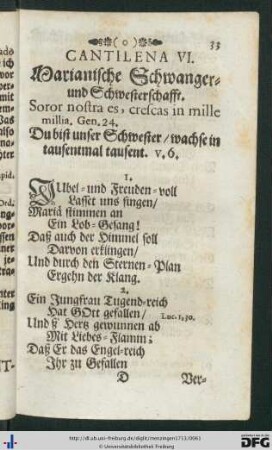 ( o )
33
CANTILENA VI.
Marianische Schwanger-
und Schwesterschafft.
Soror nostra es, crescas in mille
millia. Gen. 24.
Du bist unser Schwester / wachse in
tausentmal tausent. v. 6.
1.
JUbel- und Freuden-voll
Lasset uns singen /
Mariä stimmen an
Ein Lob-Gesang!
Daß auch der Himmel soll
Darvon erklingen /
Und durch den Sternen-Plan
Ergehn der Klang.
2.
Ein Jungfrau Tugend-reich
Hat GOtt gefallen / Luc. 1, 30.
Und ß Hertz gewunnen ab
Mit Liebes-Flamm;
Daß Er das Engel-reich
Ihr zu Gefallen
D Ver-
http://dl.ub.uni-freiburg.de/diglit/menzingen1713/0063
DFG